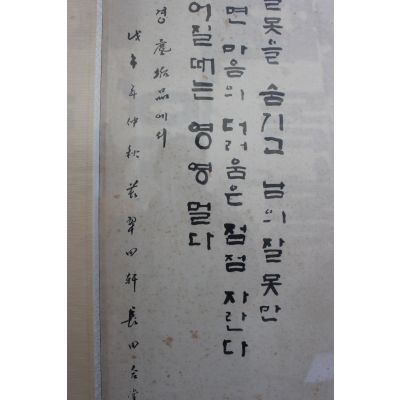 잘못을 숨기고 남의 잘못만
면 마음의 더러움은 점점 자란다
어질 때는 영영 멀다
경 塵垢品에서
戊午年 仲秋 於 翠田軒 長田